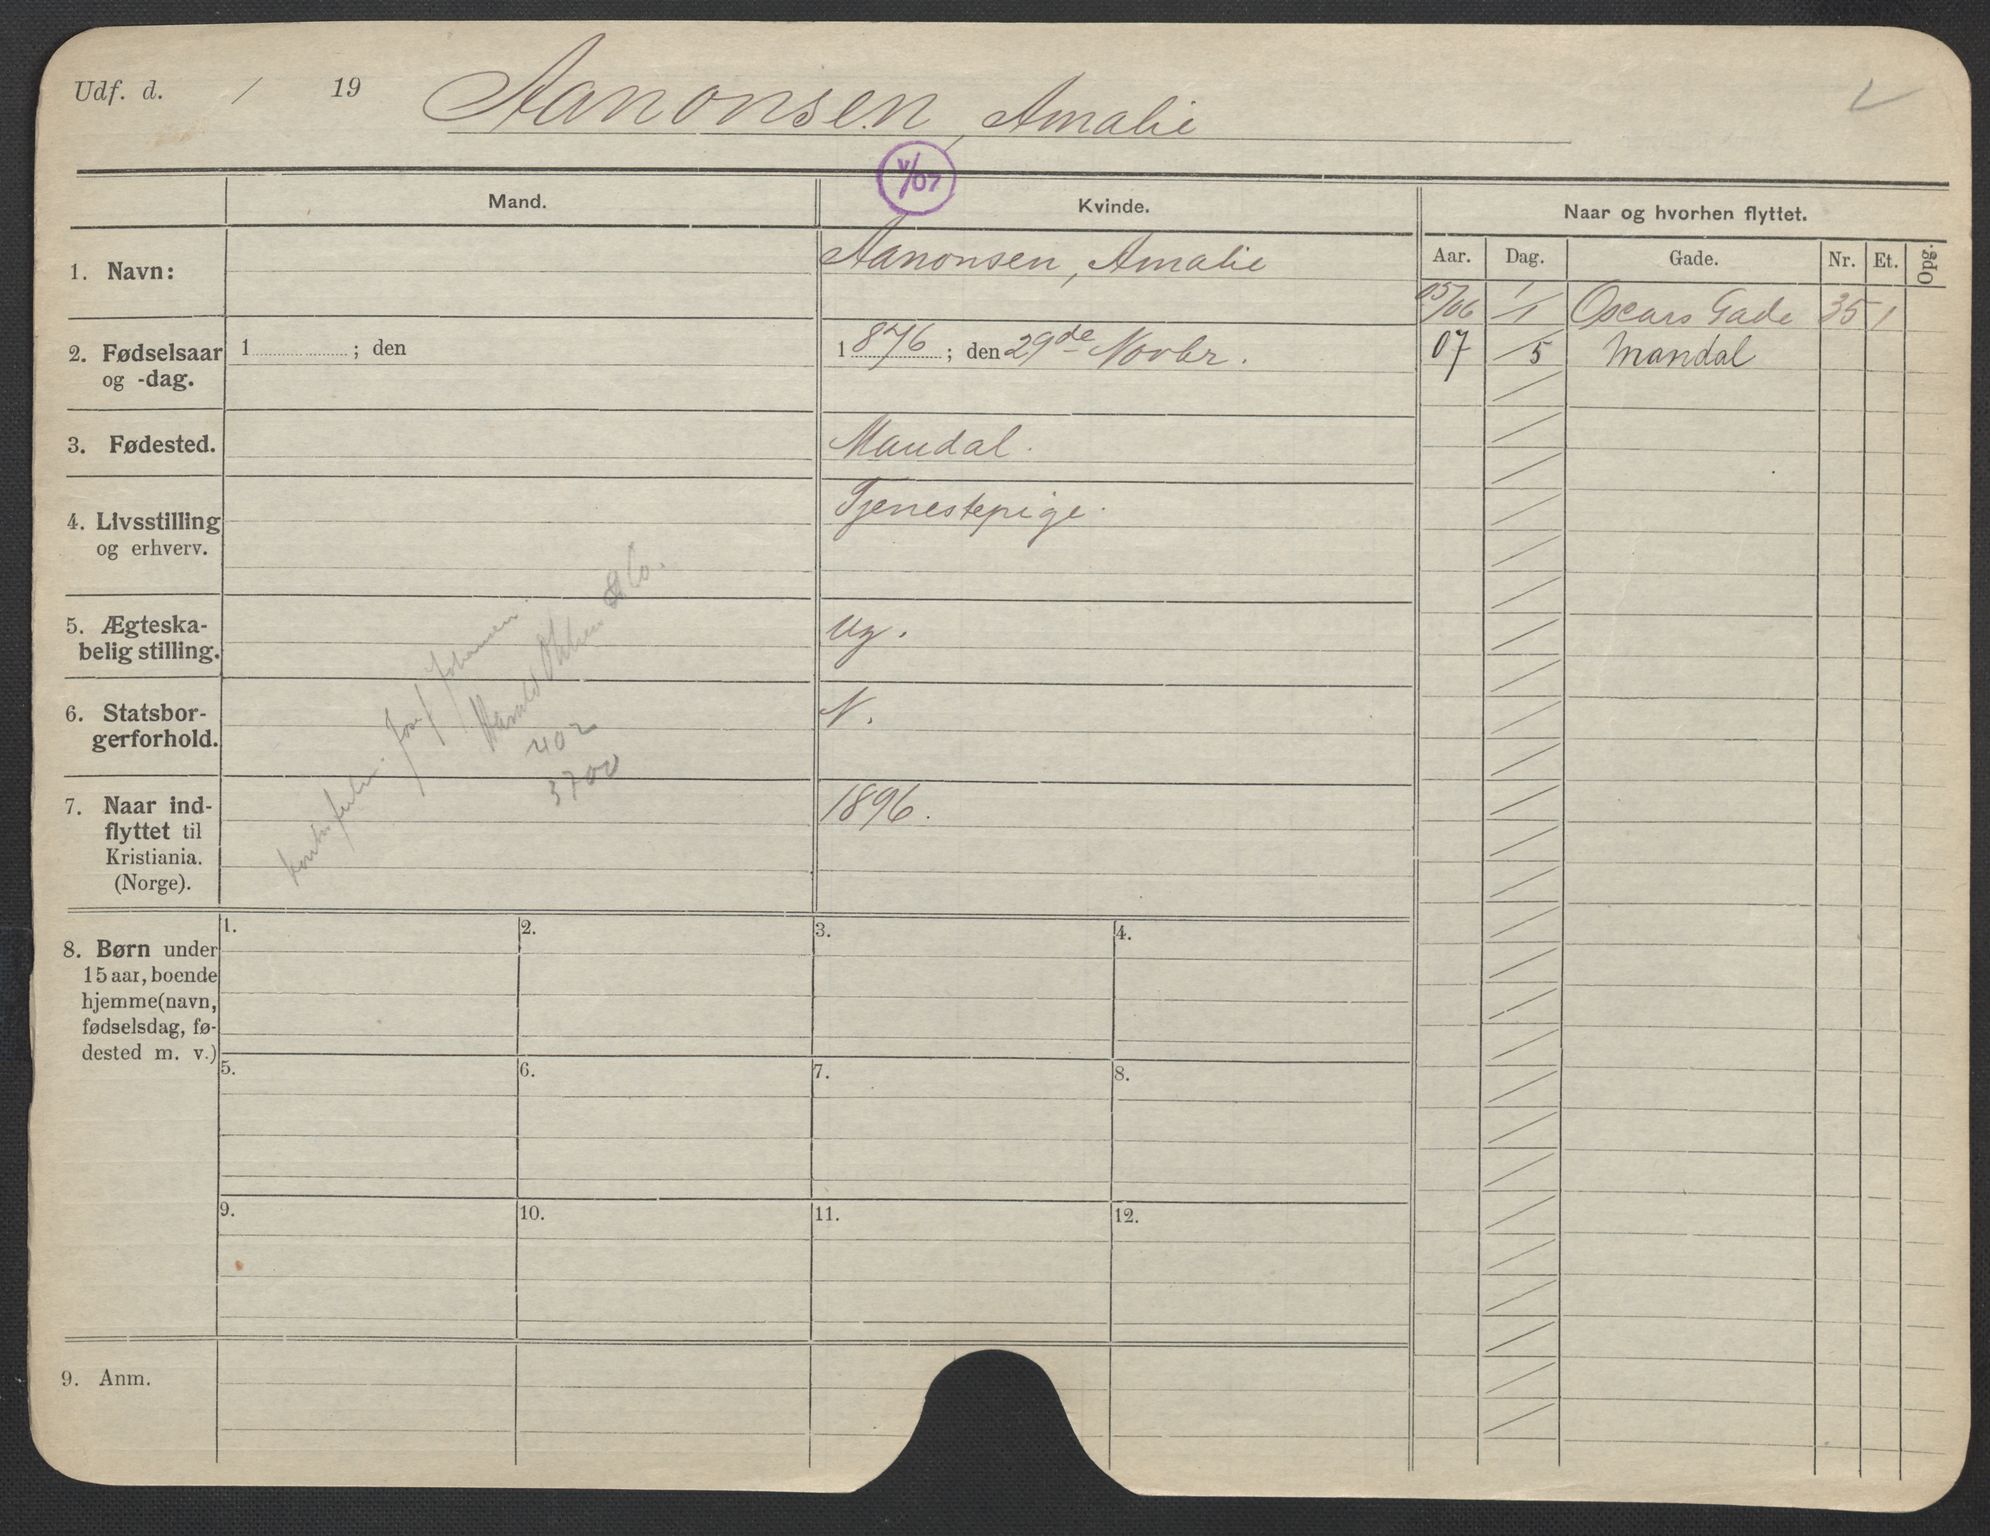 Udf. d. / 19 Aanonsen, Amalie
V/07
Mand. Kvinde. Naar og hvorhen flyttet.
Aar. Dag. Gade. Nr. Et. Opg.
1. Navn: Aanonsen, Amalie
05/06 1/1 Oscars Gade 35 1
2. Fødselsaar og -dag. 1 ; den 1876 ; den 29de Novbr.
07 /5 Mandal
3. Fødested. Mandal.
4. Livsstilling og erhverv. Tjenestepige.
5. Ægteska-
belig stilling. ug.
6. Statsbor-
gerforhold. N.
7. Naar ind-
flyttet til
Kristiania.
(Norge). 1896.
Josef Johansen.
Harald & Co.
402
3700
8. Børn under
15 aar, boende
hjemme (navn,
fødselsdag, fø-
dested m. v.)
1. 2. 3. 4.
5. 6. 7. 8.
9. 10. 11. 12.
9. Anm.